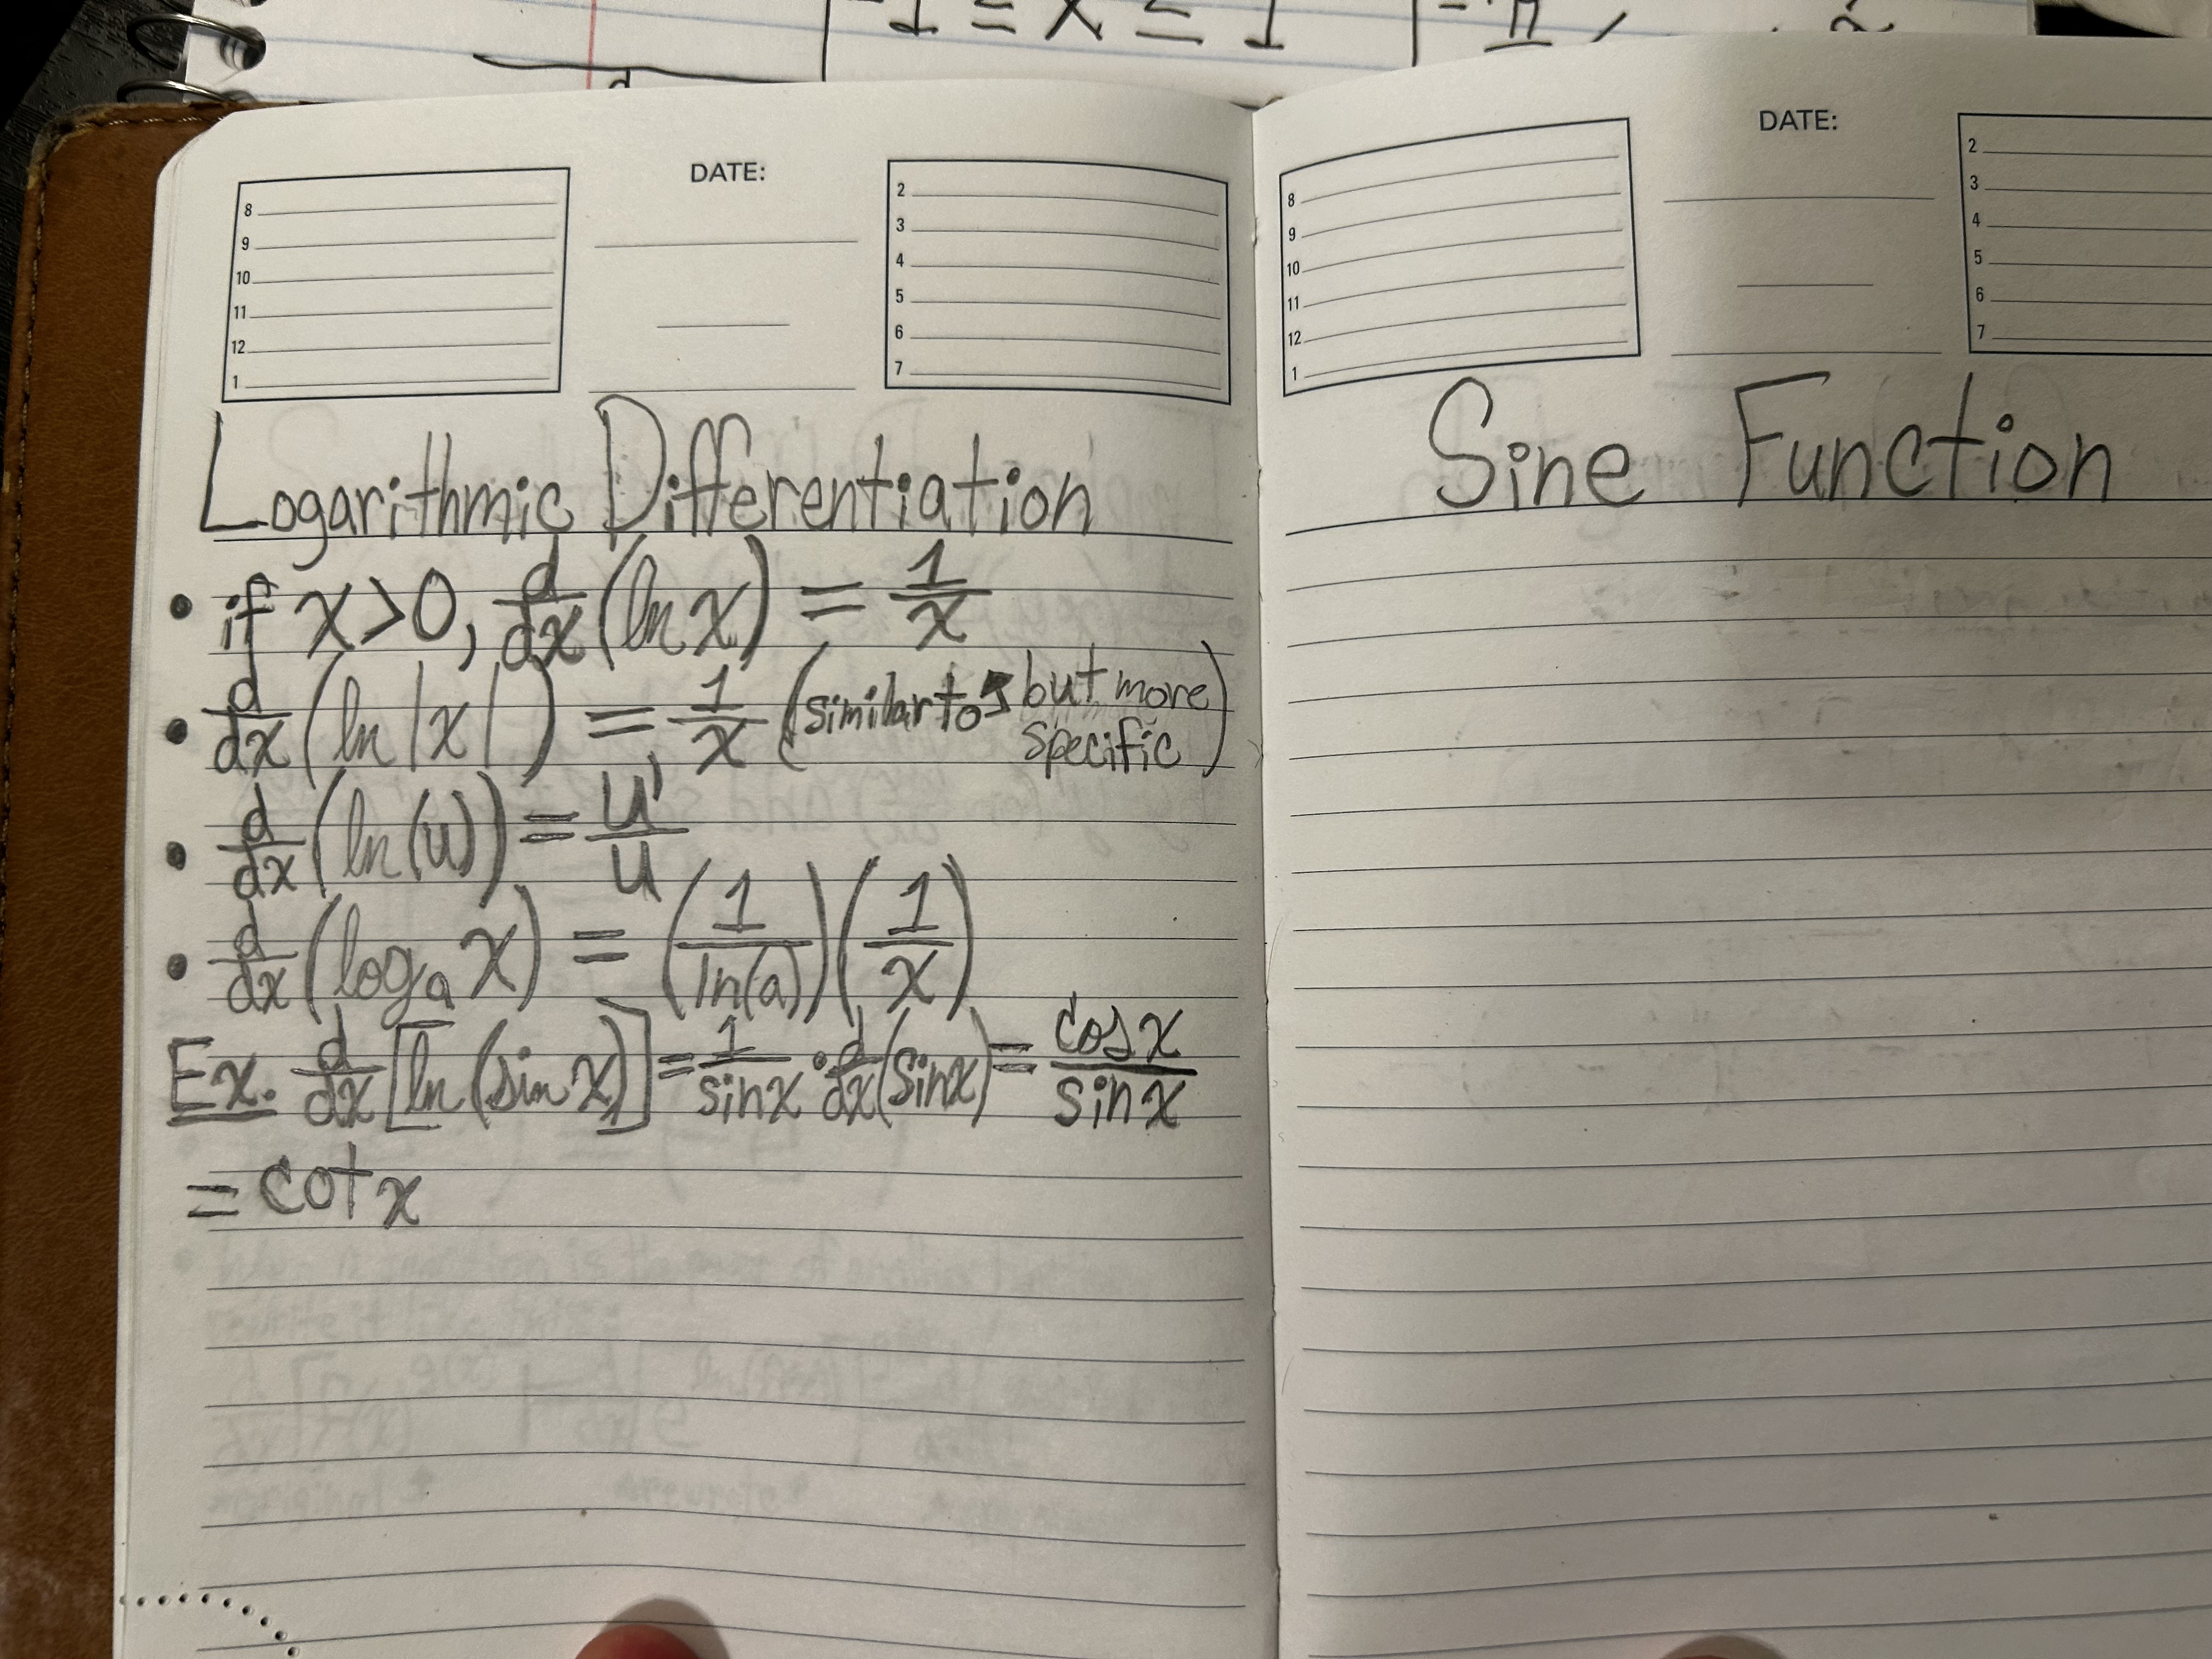 DATE:
8
9
10
11
12
1
2
3
4
5
6
7
Logarithmic Differentiation
• if x>0, d/dx (ln x) = 1/x
• d/dx (ln |x|) = 1/x (similar to ↑ but more specific)
• d/dx (ln(u)) = u'/u
• d/dx (logₐ x) = (1/ln(a))(1/x)
Ex. d/dx [ln(sin x)] = 1/sin x · d/dx (sin x) = cos x/sin x
= cot x
DATE:
8
9
10
11
12
1
2
3
4
5
6
7
Sine Function